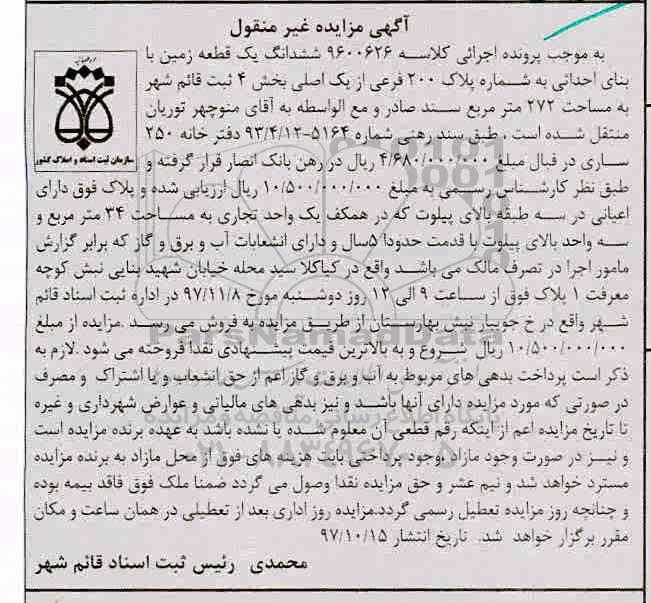 آگهی مزایده غیر منقول
به موجب پرونده اجرائی کلاسه ۹۶۰۰۶۲۶ ششدانگ یک قطعه زمین با
بنای احداثی به شماره پلاک ۲۰۰ فرعی از یک اصلی بخش ۴ ثبت قائم شهر
به مساحت ۲۷۲ متر مربع سند صادر و مع الواسطه به آقای منوچهر توریان
منتقل شده است ، طبق سند رهنی شماره ۵۱۶۴-۹۳/۴/۱۲ دفتر خانه ۲۵۰
ساری در قبال مبلغ ۴/۶۸۰/۰۰۰/۰۰۰ ریال در رهن بانک انصار قرار گرفته و
طبق نظر کارشناس رسمی به مبلغ ۱۰/۵۰۰/۰۰۰/۰۰۰ ریال ارزیابی شده و پلاک فوق دارای
اعیانی در سه طبقه بالای پیلوت که در همکف یک واحد تجاری به مساحت ۳۴ متر مربع و
سه واحد بالای پیلوت با قدمت حدودا ۵سال و دارای انشعابات آب و برق و گاز که برابر گزارش
مامور اجرا در تصرف مالک می باشد واقع در کیاکلا سید محله خیابان شهید بنایی نبش کوچه
معرفت ۱ پلاک فوق از ساعت ۹ الی ۱۲ روز دوشنبه مورخ ۹۷/۱۱/۸ در اداره ثبت اسناد قائم
شهر واقع در خ جویبار نبش بهارستان از طریق مزایده به فروش می رسد .مزایده از مبلغ
۱۰/۵۰۰/۰۰۰/۰۰۰ ریال شروع و به بالاترین قیمت پیشنهادی نقدا فروخته می شود .لازم به
ذکر است پرداخت بدهی های مربوط به آب و برق و گاز اعم از حق انشعاب و یا اشتراک و مصرف
در صورتی که مورد مزایده دارای آنها باشد و نیز بدهی های مالیاتی و عوارض شهرداری و غیره
تا تاریخ مزایده اعم از اینکه رقم قطعی آن معلوم شده یا نشده باشد به عهده برنده مزایده است
و نیز در صورت وجود مازاد وجوه پرداختی بابت هزینه های فوق از محل مازاد به برنده مزایده
مسترد خواهد شد و نیم عشر و حق مزایده نقدا وصول می گردد ضمنا ملک فوق فاقد بیمه بوده
و چنانچه روز مزایده تعطیل رسمی گردد.مزایده روز اداری بعد از تعطیلی در همان ساعت و مکان
مقرر برگزار خواهد شد. تاریخ انتشار ۹۷/۱۰/۱۵
محمدی رئیس ثبت اسناد قائم شهر
سازمان ثبت اسناد و املاک کشور
ParsNamadData
پایگاه اطلاع رسانی مناقصه مزایده